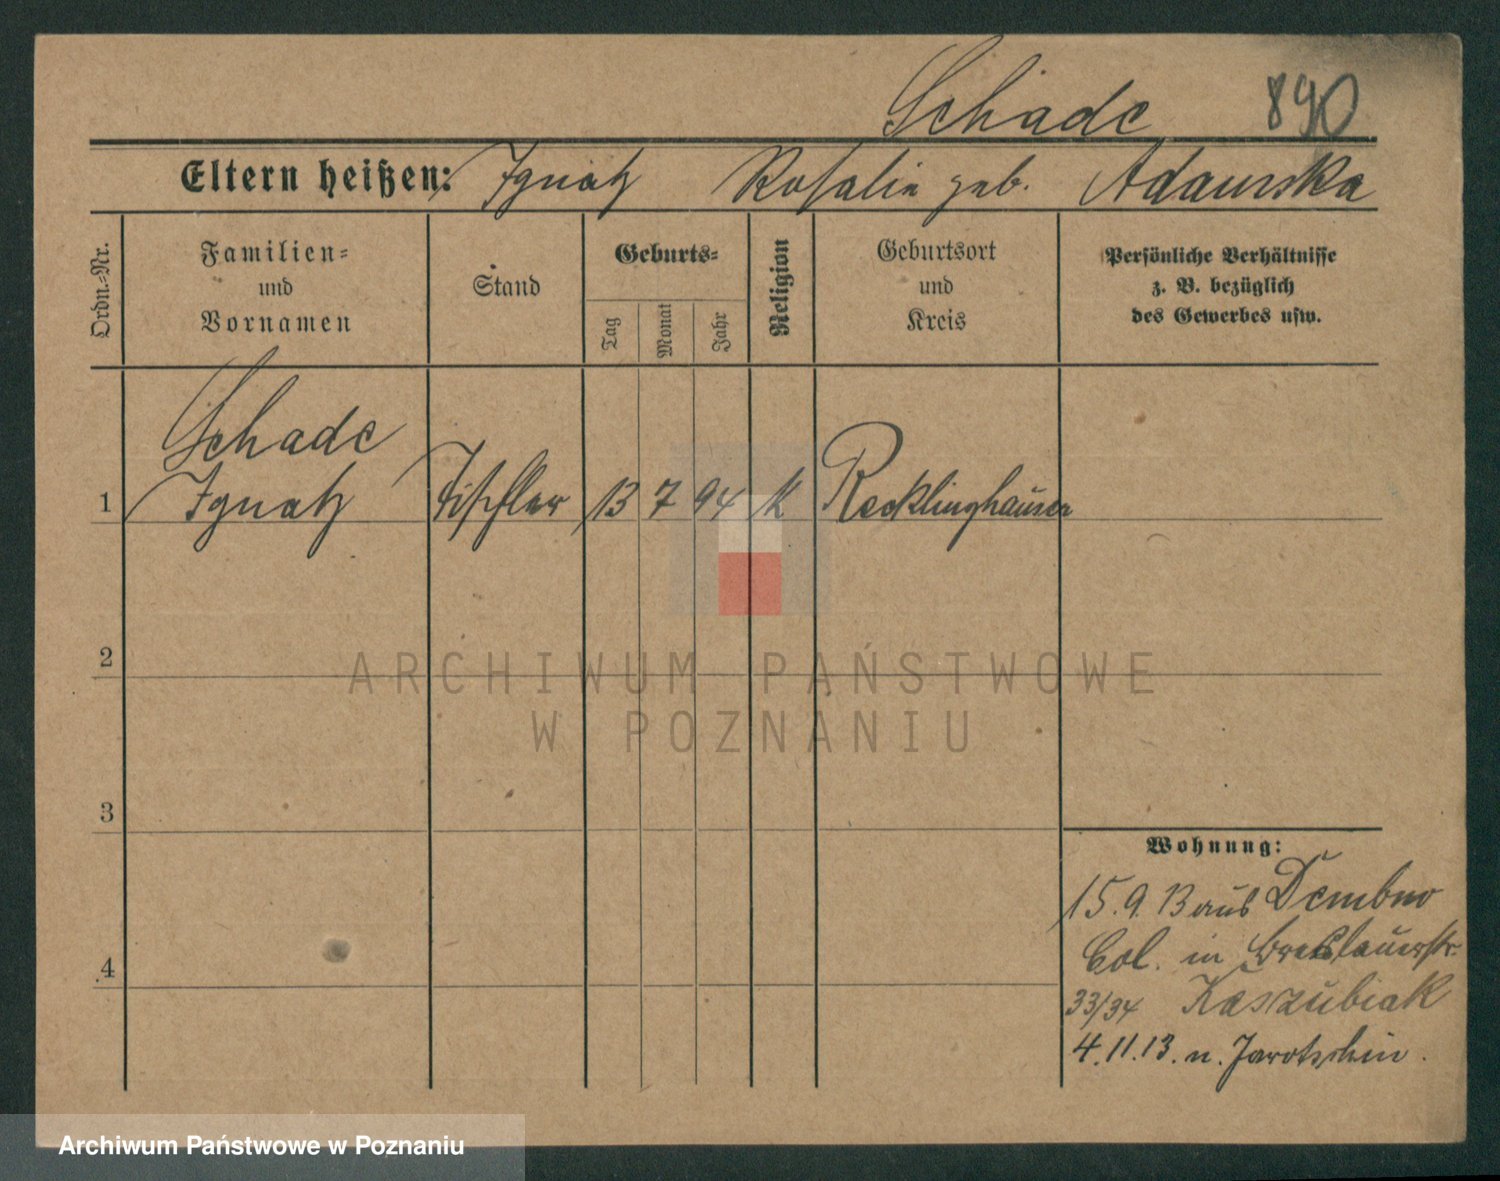 Schade 890
Eltern heißen: Ignatz Rosalie geb. Adamska
Ordn.-Nr.
Familien-
und
Vornamen
Stand
Geburts-
Tag
Monat
Jahr
Religion
Geburtsort
und
Kreis
Persönliche Verhältnisse
z. B. bezüglich
des Gewerbes usw.
Schade
1 Ignatz Tischler 13 7 94 K Recklinghausen
2
3
4
ARCHIWUM PAŃSTWOWE
W POZNANIU
Wohnung:
15.9.13 aus Dembno
Col. in Breslauerstr.
33/34 Kaszubiak
4.11.13. n. Jarotschin.
Archiwum Państwowe w Poznaniu